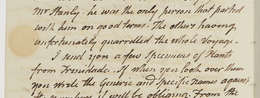 Mr Hanly he was the only person that parted
with him on good terms. The others having
unfortunately quarrelled the whole Voyage.
I send you a few Specimens of Plants
from Trinidade. if when you look over them
you wrote the Generic and Specific Names against
the numbers it will be obliging. From the